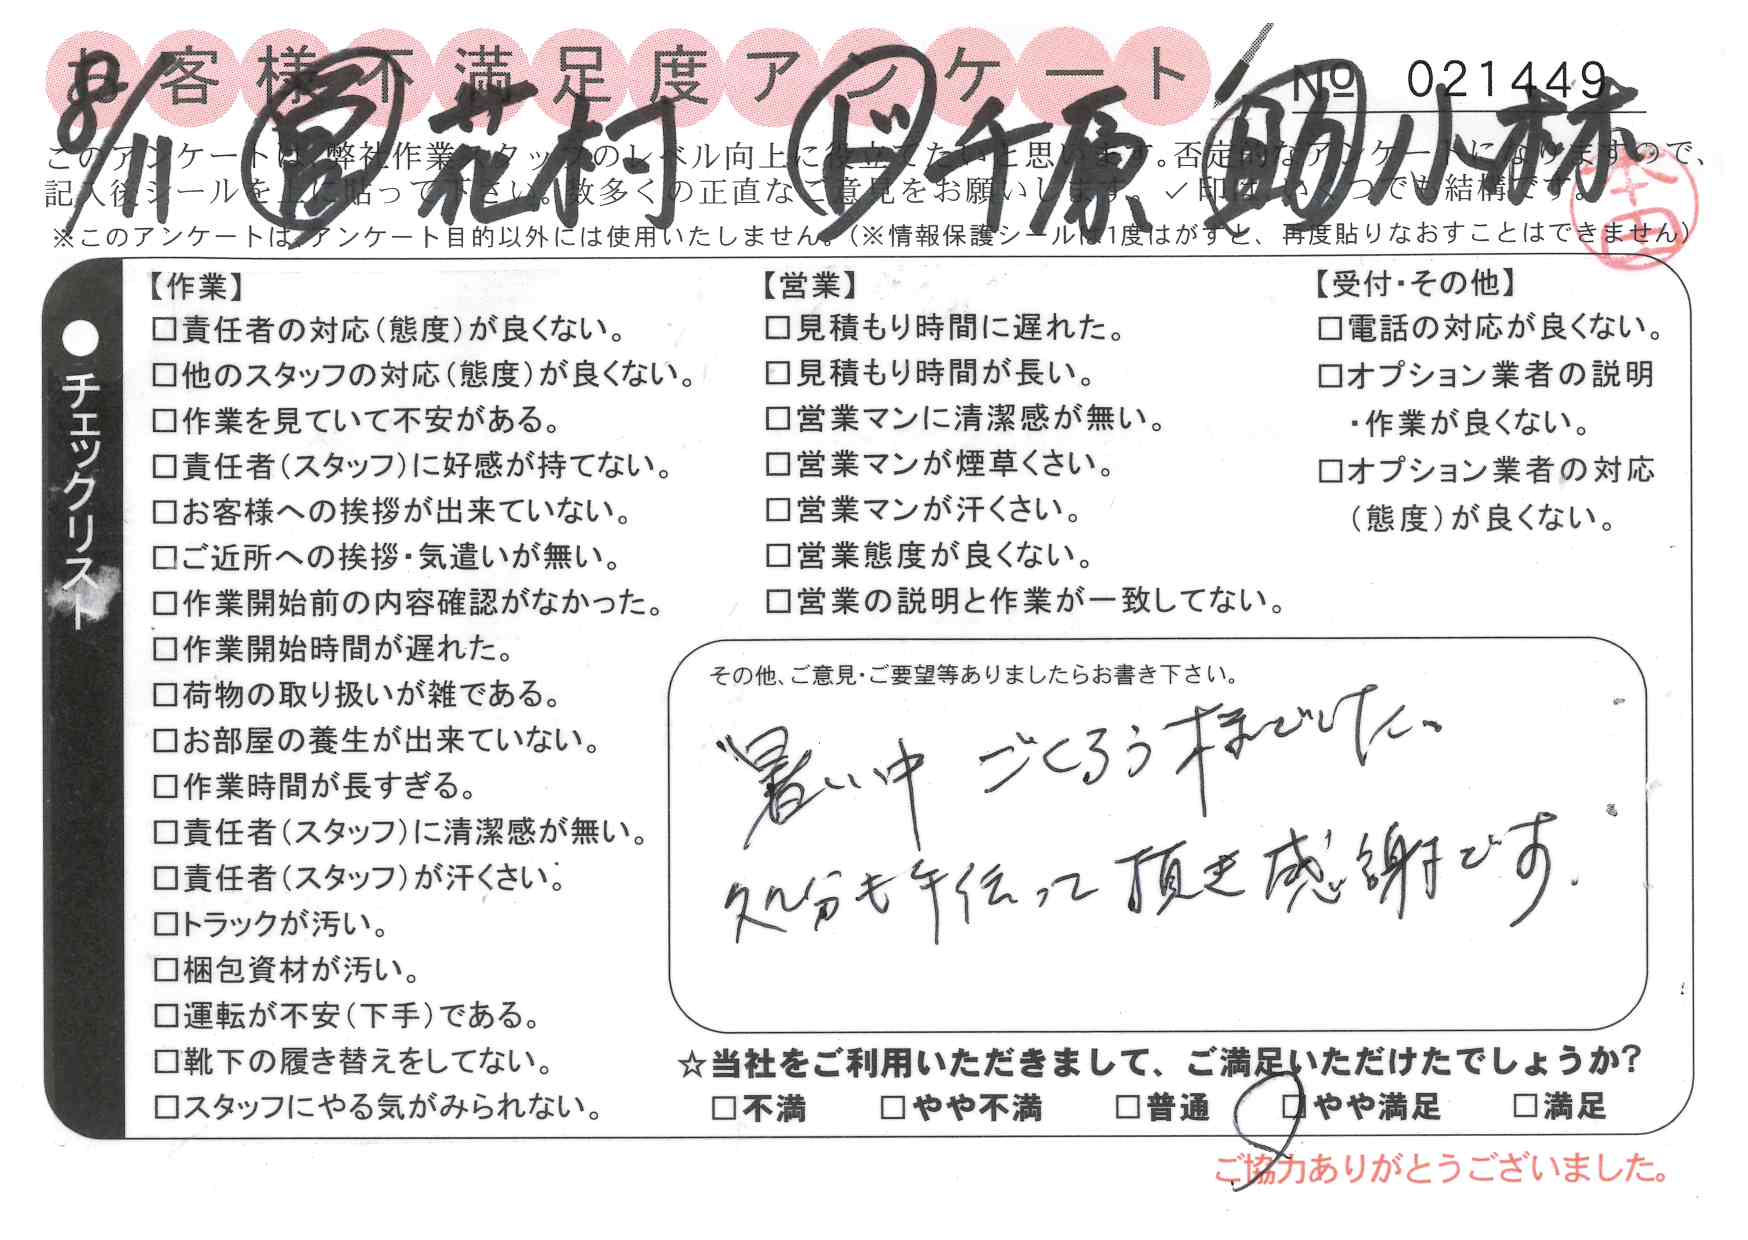 お客様不満足度アンケート
№ 021449
8/11 営 花村 ド 千原 助 小林
このアンケートは、弊社作業スタッフのレベル向上に役立てたいと思います。否定的なアンケートになりますので、
記入後シールを上に貼って下さい。数多くの正直なご意見をお願いします。✓印は、いくつでも結構です。
※このアンケートは、アンケート目的以外には使用いたしません。(※情報保護シールは1度はがすと、再度貼りなおすことはできません)
●チェックリスト
【作業】
□責任者の対応(態度)が良くない。
□他のスタッフの対応(態度)が良くない。
□作業を見ていて不安がある。
□責任者(スタッフ)に好感が持てない。
□お客様への挨拶が出来ていない。
□ご近所への挨拶・気遣いが無い。
□作業開始前の内容確認がなかった。
□作業開始時間が遅れた。
□荷物の取り扱いが雑である。
□お部屋の養生が出来ていない。
□作業時間が長すぎる。
□責任者(スタッフ)に清潔感が無い。
□責任者(スタッフ)が汗くさい。
□トラックが汚い。
□梱包資材が汚い。
□運転が不安(下手)である。
□靴下の履き替えをしてない。
□スタッフにやる気がみられない。
【営業】
□見積もり時間に遅れた。
□見積もり時間が長い。
□営業マンに清潔感が無い。
□営業マンが煙草くさい。
□営業マンが汗くさい。
□営業態度が良くない。
□営業の説明と作業が一致してない。
【受付・その他】
□電話の対応が良くない。
□オプション業者の説明
・作業が良くない。
□オプション業者の対応
(態度)が良くない。
その他、ご意見・ご要望等ありましたらお書き下さい。
暑い中 ごくろう様でした。
処分も手伝って頂き感謝です.
☆当社をご利用いただきまして、ご満足いただけたでしょうか?
□不満 □やや不満 □普通 □やや満足 □満足
ご協力ありがとうございました。